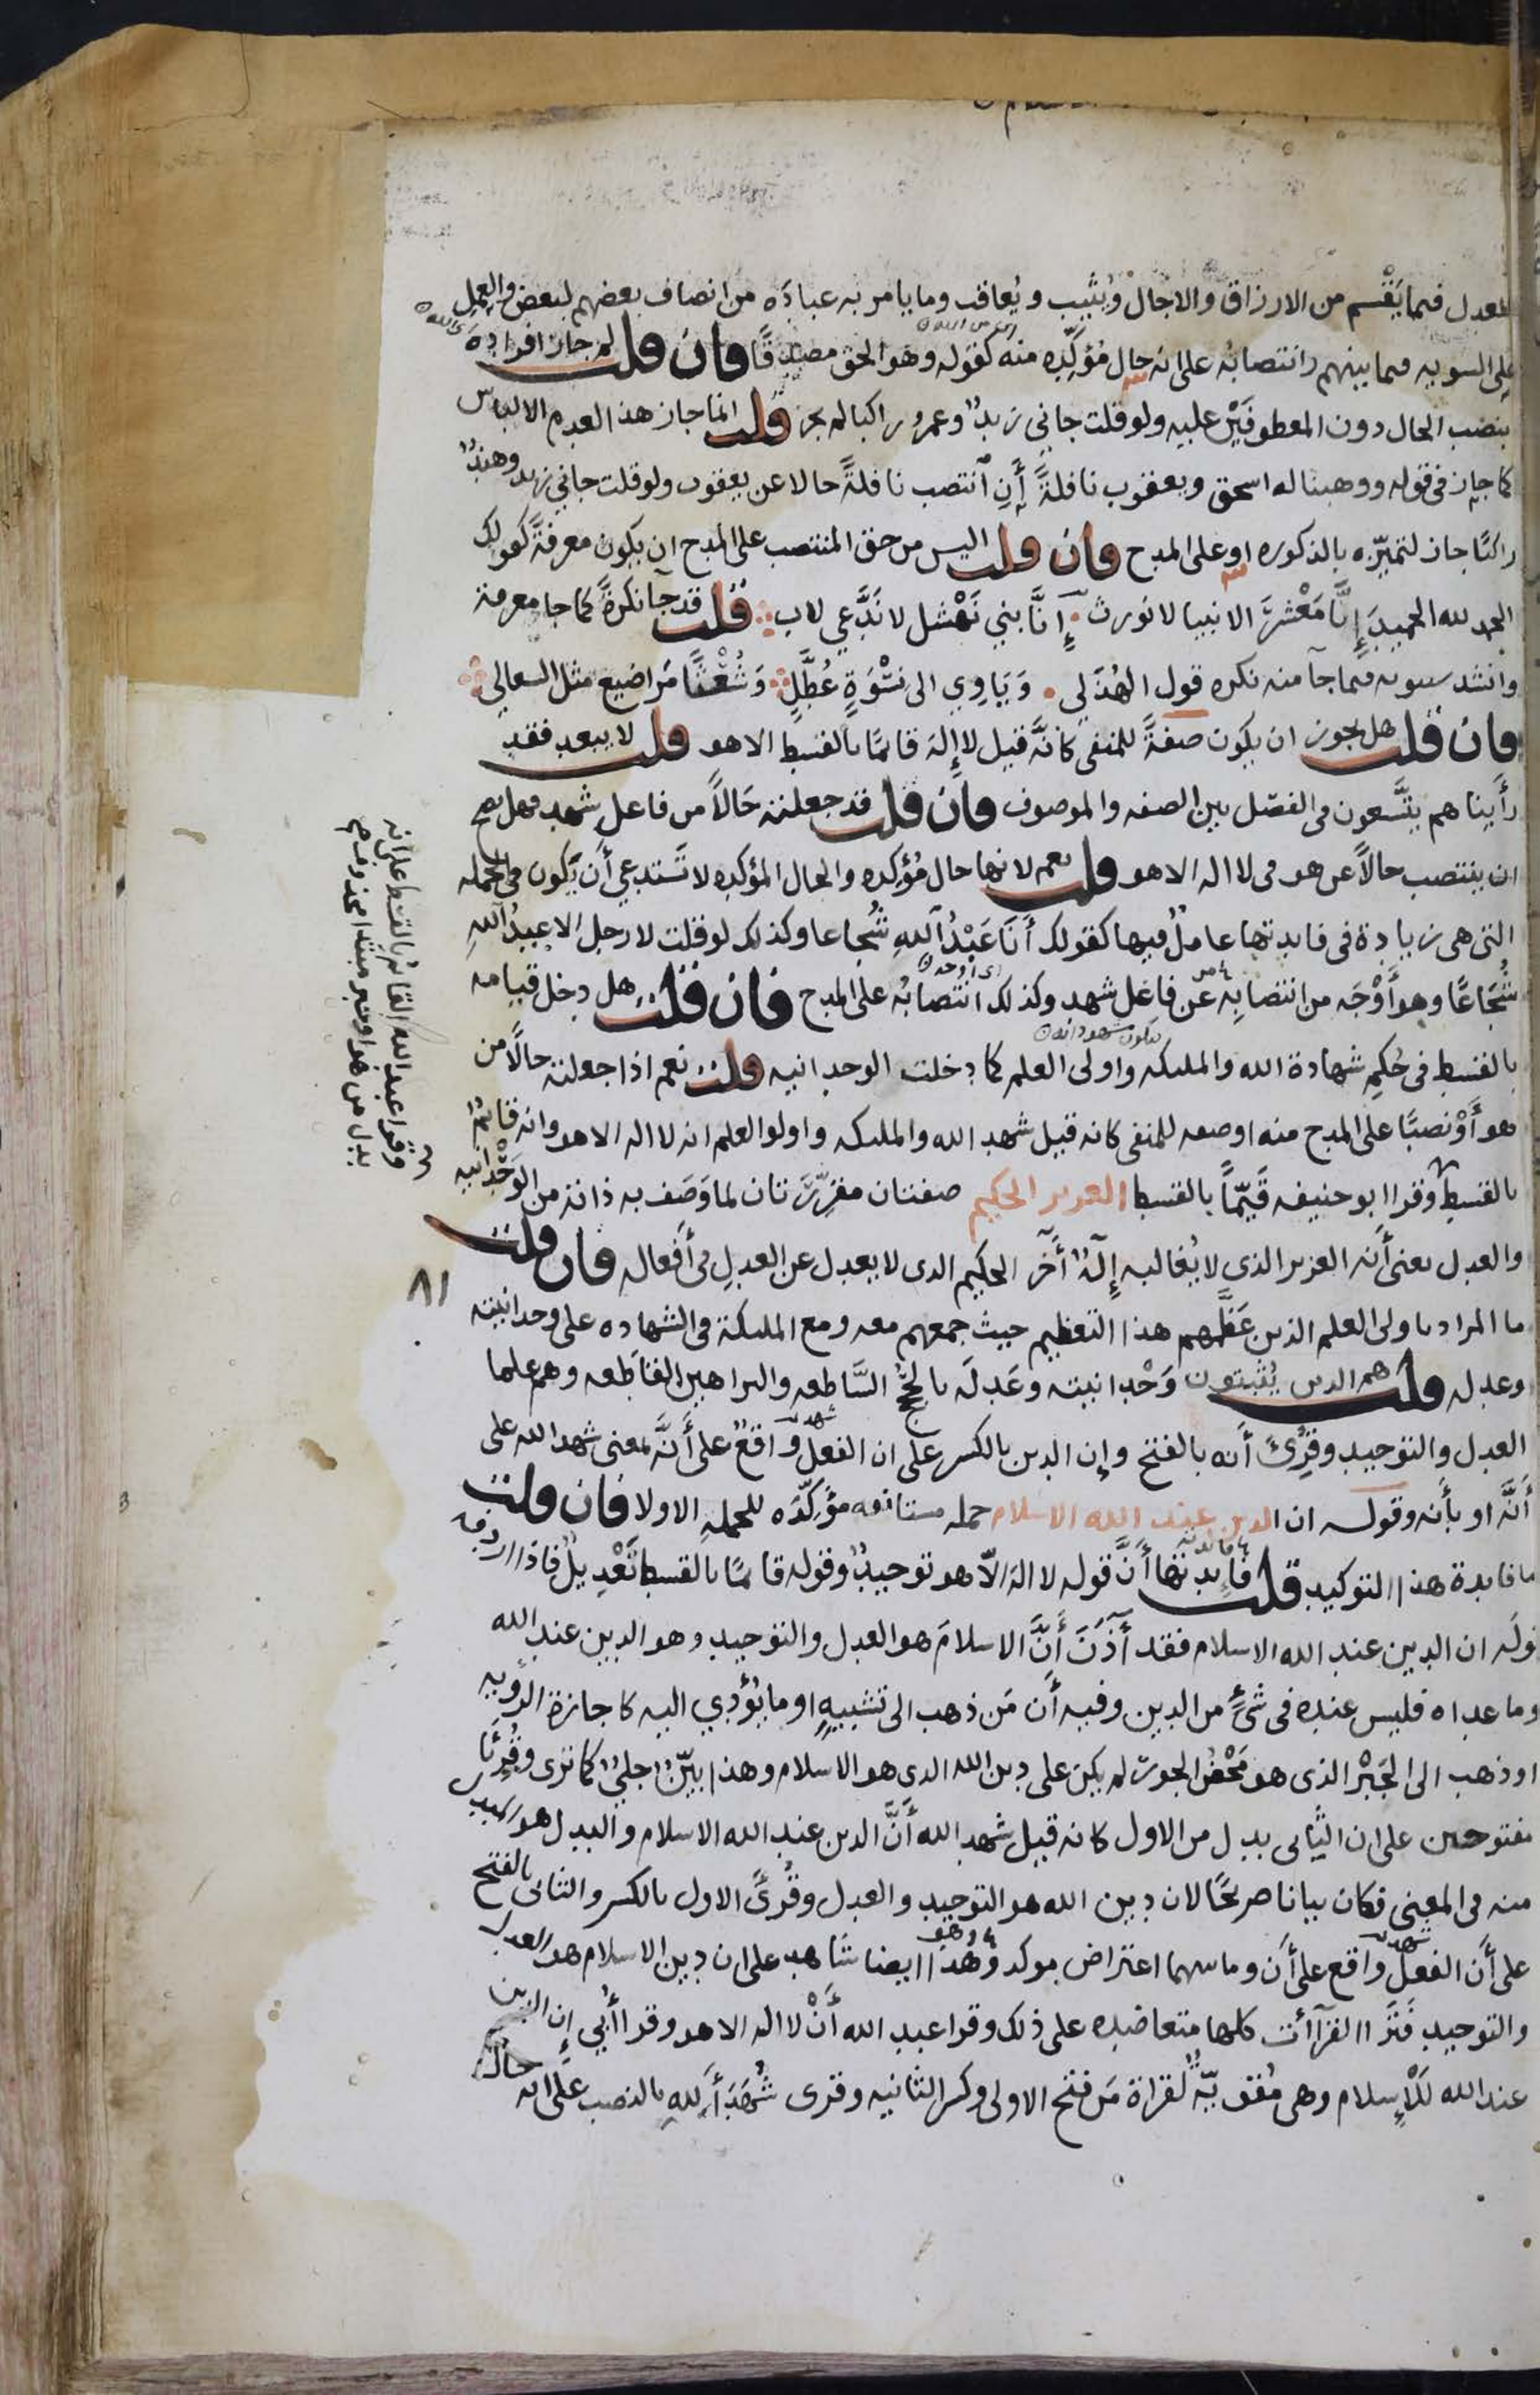 للعدل فيما يَقْسم من الارزاق والاجال ويُثيب ويُعاقب وما يامر به عبادَه من انصاف بعضهم لبعض والعمل
على السويه فيما بينهم وانتصابُه على انه حال مُؤكِّده منه كقوله وهو الحق مصدقًا فان قلت لم جاز افرادهَ
بنصب الحال دون المعطوفَيْن عليه ولو قلت جاني زيدٌ وعمرو راكبا لم يجز قلت انما جاز هذا لعدم الالباس
كما جاز في قوله ووهبنا له اسحق ويعقوب نافلةً أنِ انتصب نافلةً حالا عن يعقوب ولو قلت جاني زيد وهندٌ
راكبًا جاز لتميّزه بالذكوره او على المدح فان قلت اليس من حق المنتصب على المدح ان يكون معرفةً كقولك
الحمد لله الحميدَ إنّا مَعْشرَ الانبيا لا نورث إنّا بني نَهْشل لا نَدَّعي لاب قلت قد جآ نكرةً كما جا معرفة
وانشد سيبويه فيما جآ منه نكره قول الهُذَلي وَيَاوِي الى نسْوَةٍ عُطَّلٍ وَشُعْثًا مَراضيع مثل السعالي
فان قلت هل يجوز ان يكون صفةً للمنفي كانَّه قيل لا إلهَ قائمًا بالقسط الا هو قلت لا يبعد فقد
رأيناهم يتَّسعون في الفصْل بين الصفه والموصوف فان قلت قد جعلته حَالاً من فاعل شهد فهل يصح
ان ينتصب حالاً عن هو في لا اله الا هو قلت نعم لانها حال مُؤكِده والحال المؤكِده لا تَستدعي أن يَكون في الجمله
التي هي زيادة في فايدتها عاملٌ فيها كقولك أنَا عَبْدُ اللهِ شُجاعا وكذلك لو قلت لا رجل الا عبدُ اللهِ
شُجَاعًا وهو أَوْجَه من انتصابِه عن فاعل شهد وكذلك انتصابُه على المدح فان قلت هل دخل قيامه
بالقسط في حُكمِ شهادة الله والملئكه واولى العلم كما دخلت الوحدانيه قلت نعم اذا جعلته حالاً من
هو أوْ نصبًا على المدح منه او صفه للمنفي كانه قيل شهد الله والملئكه واولوا العلم انه لا اله الا هو وانه قائمٌ
بالقسط وقرا ابو حنيفه قَيّمًا بالقسط العزيز الحكيم صفتان مقرِّرَتان لما وَصَف به ذاته من الوَحْدَانيه
والعدل يعنى أنه العزيز الذي لا يُغالبه إلَهٌ آخَر الحكيم الذي لا يعدل عن العدلِ في أفعاله فان قلت
ما المراد باولى العلم الذين عَظّمهم هذا التعظيم حيث جمعهم معه ومع الملئكة في الشهاده على وحدانيته
وعدله قلت هم الذين يُثْبتون وَحْدانيته وعَدله بالحجج السَّاطعه والبراهين القاطعه وهم علما
العدل والتوحيد وقُرِئَ أنه بالفتح وإن الدين بالكسر على ان الفعل وَاقعٌ على أنَّه بمعنى شهد الله على
أنَّه او بأنه وقوله ان الدين عند الله الاسلام جمله مستانفه مؤكِّدَه للجملهِ الاولا فان قلت
ما فايدة هذا التوكيد قلت فايدتها أنَّ قوله لا اله إلاّ هو توحيدٌ وقوله قائمًا بالقسط تَعْدِيلٌ فاذا اردفه
قولَه ان الدين عند الله الاسلام فقد آذَنَ أَنَّ الاسلامَ هو العدل والتوحيد وهو الدين عند الله
وما عداه فليس عنده في شئٍ من الدين وفيه أن مَن ذهب الى تشبيهٍ او ما يُؤدِي اليه كاجازة الرؤيه
او ذهب الى الجَبْر الذي هو مَحْضُ الجور لم يكن على دين الله الذي هو الاسلام وهذا بيّنٌ جليٌ كما ترى وقُرِئَا
مفتوحين على ان الثاني بدل من الاول كانه قيل شهد الله أَنَّ الدين عند الله الاسلام والبدل هو المبدل
منه في المعنى فكان بيانا صريحًا لان دين الله هو التوحيد والعدل وقُرِئَ الاول بالكسر والثاني بالفتح
على أن الفعلَ واقع على أَن وما بينهما اعتراض موكد وهذا ايضا شاهد على ان دين الاسلام هو العدل
والتوحيد فتَرَى القرآآت كلها متعاضده على ذلك وقرا عبد الله أَنْ لا اله الا هو وقرا أُبي إن الدين
عند الله لَلْإسلام وهي مُقَوِّيّةٌ لقراة مَن فتح الاولى وكسر الثانيه وقرى شُهَدَآ لله بالنصب على انه حال
وقرا عبد الله القائم بالقسط على انه
بدل من هو او خبر مبتدا محذوف
٨١